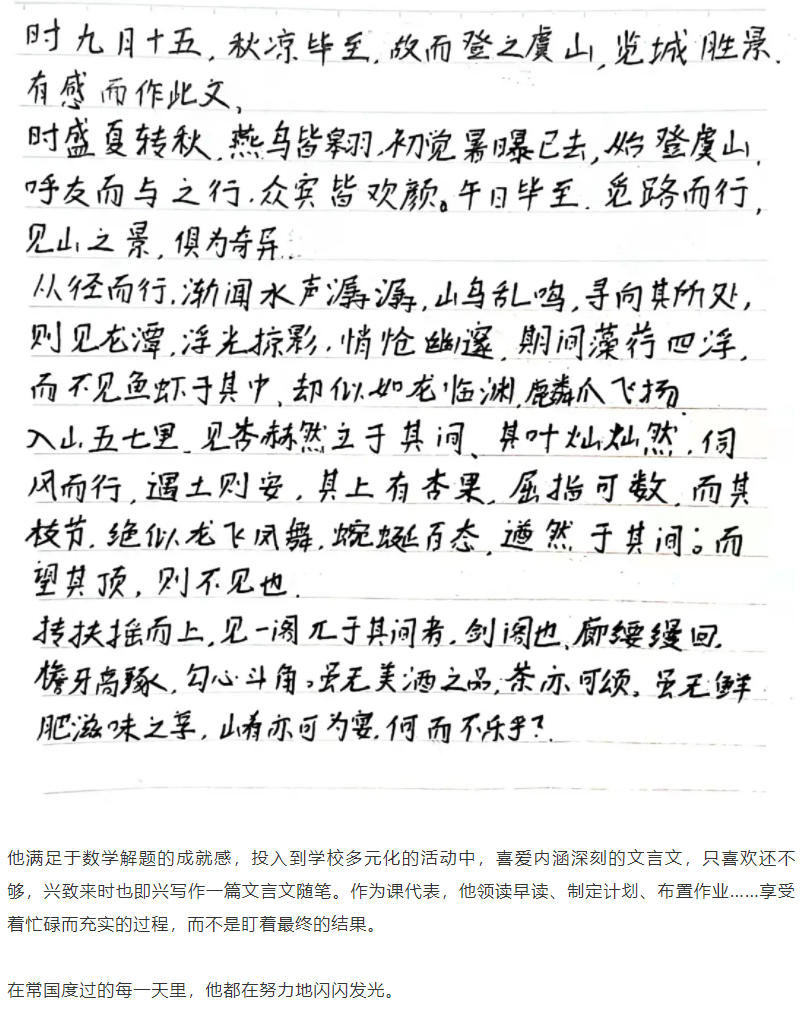 时九月十五，秋凉毕至，故而登之虞山，览城胜景，
有感而作此文、
时盛夏转秋，燕鸟皆翱羽，初觉暑曝已去，始登虞山，
呼友而与之行，众宾皆欢颜。午日毕至，觅路而行，
见山之景，俱为奇异.
从径而行，渐闻水声潺潺，山鸟乱鸣，寻向其所处，
则见龙潭，浮光掠影，悄怆幽邃，期间藻荇四浮，
而不见鱼虾于其中、却似如龙临渊，麟爪飞扬.
入山五七里，见杏赫然立于其间、其叶灿灿然，伺
风而行，遇土则安，其上有杏果，屈指可数，而其
枝节，绝似龙飞凤舞，蜿蜒百态，遒然于其间；而
望其顶，则不见也.
抟扶摇而上，见一阁兀于其间者，剑阁也、廊缦回，
檐牙高，勾心斗角。虽无美酒之品，茶亦可颂，虽无鲜
肥滋味之享，山肴亦可为宴，何而不乐乎？
他满足于数学解题的成就感，投入到学校多元化的活动中，喜爱内涵深刻的文言文，只喜欢还不
够，兴致来时也即兴写作一篇文言文随笔。作为课代表，他领读早读、制定计划、布置作业……享受
着忙碌而充实的过程，而不是盯着最终的结果。
在常国度过的每一天里，他都在努力地闪闪发光。